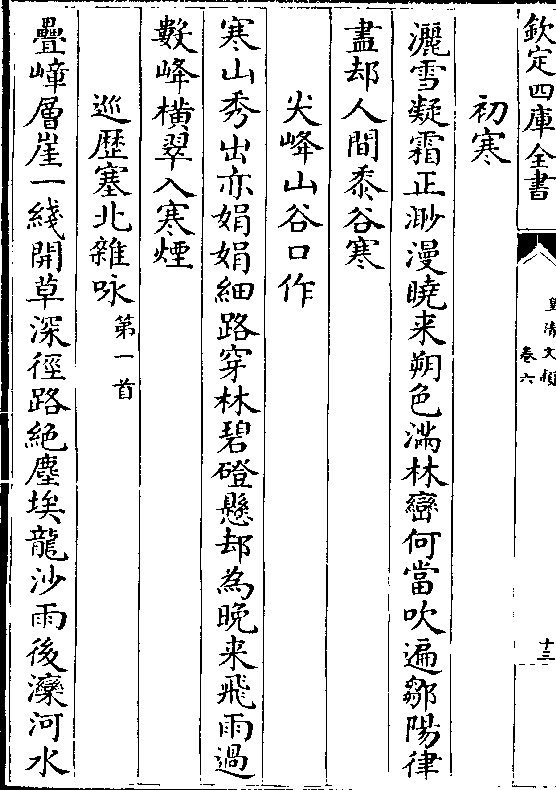 欽定四庫全書
皇清文穎
卷六
十三
初寒
灑雪凝霜正渺漫曉来朔色滿林巒何當吹遍鄒陽律
盡却人間黍谷寒
尖峰山谷口作
寒山秀出亦娟娟細路穿林碧磴懸却為晚来飛雨過
數峰橫翠入寒煙
巡歴塞北雜咏第一首
疊嶂層崖一綫開草深徑路絶塵埃龍沙雨後灤河水